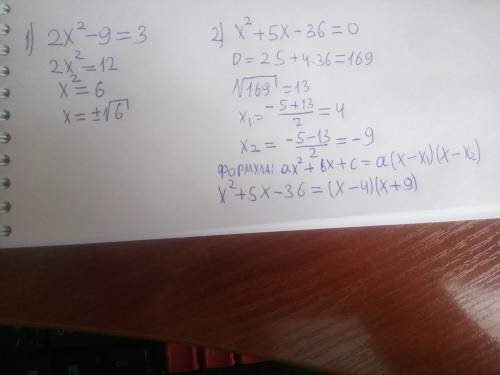 1) 2x²-9=3
2x²=12
x²=6
x=±√6
2) x²+5x-36=0
D=25+4·36=169
√169=13
x₁=-5+13/2=4
x₂=-5-13/2=-9
ФОРМУЛА: ax²+bx+c=a(x-x₁)(x-x₂)
x²+5x-36=(x-4)(x+9)